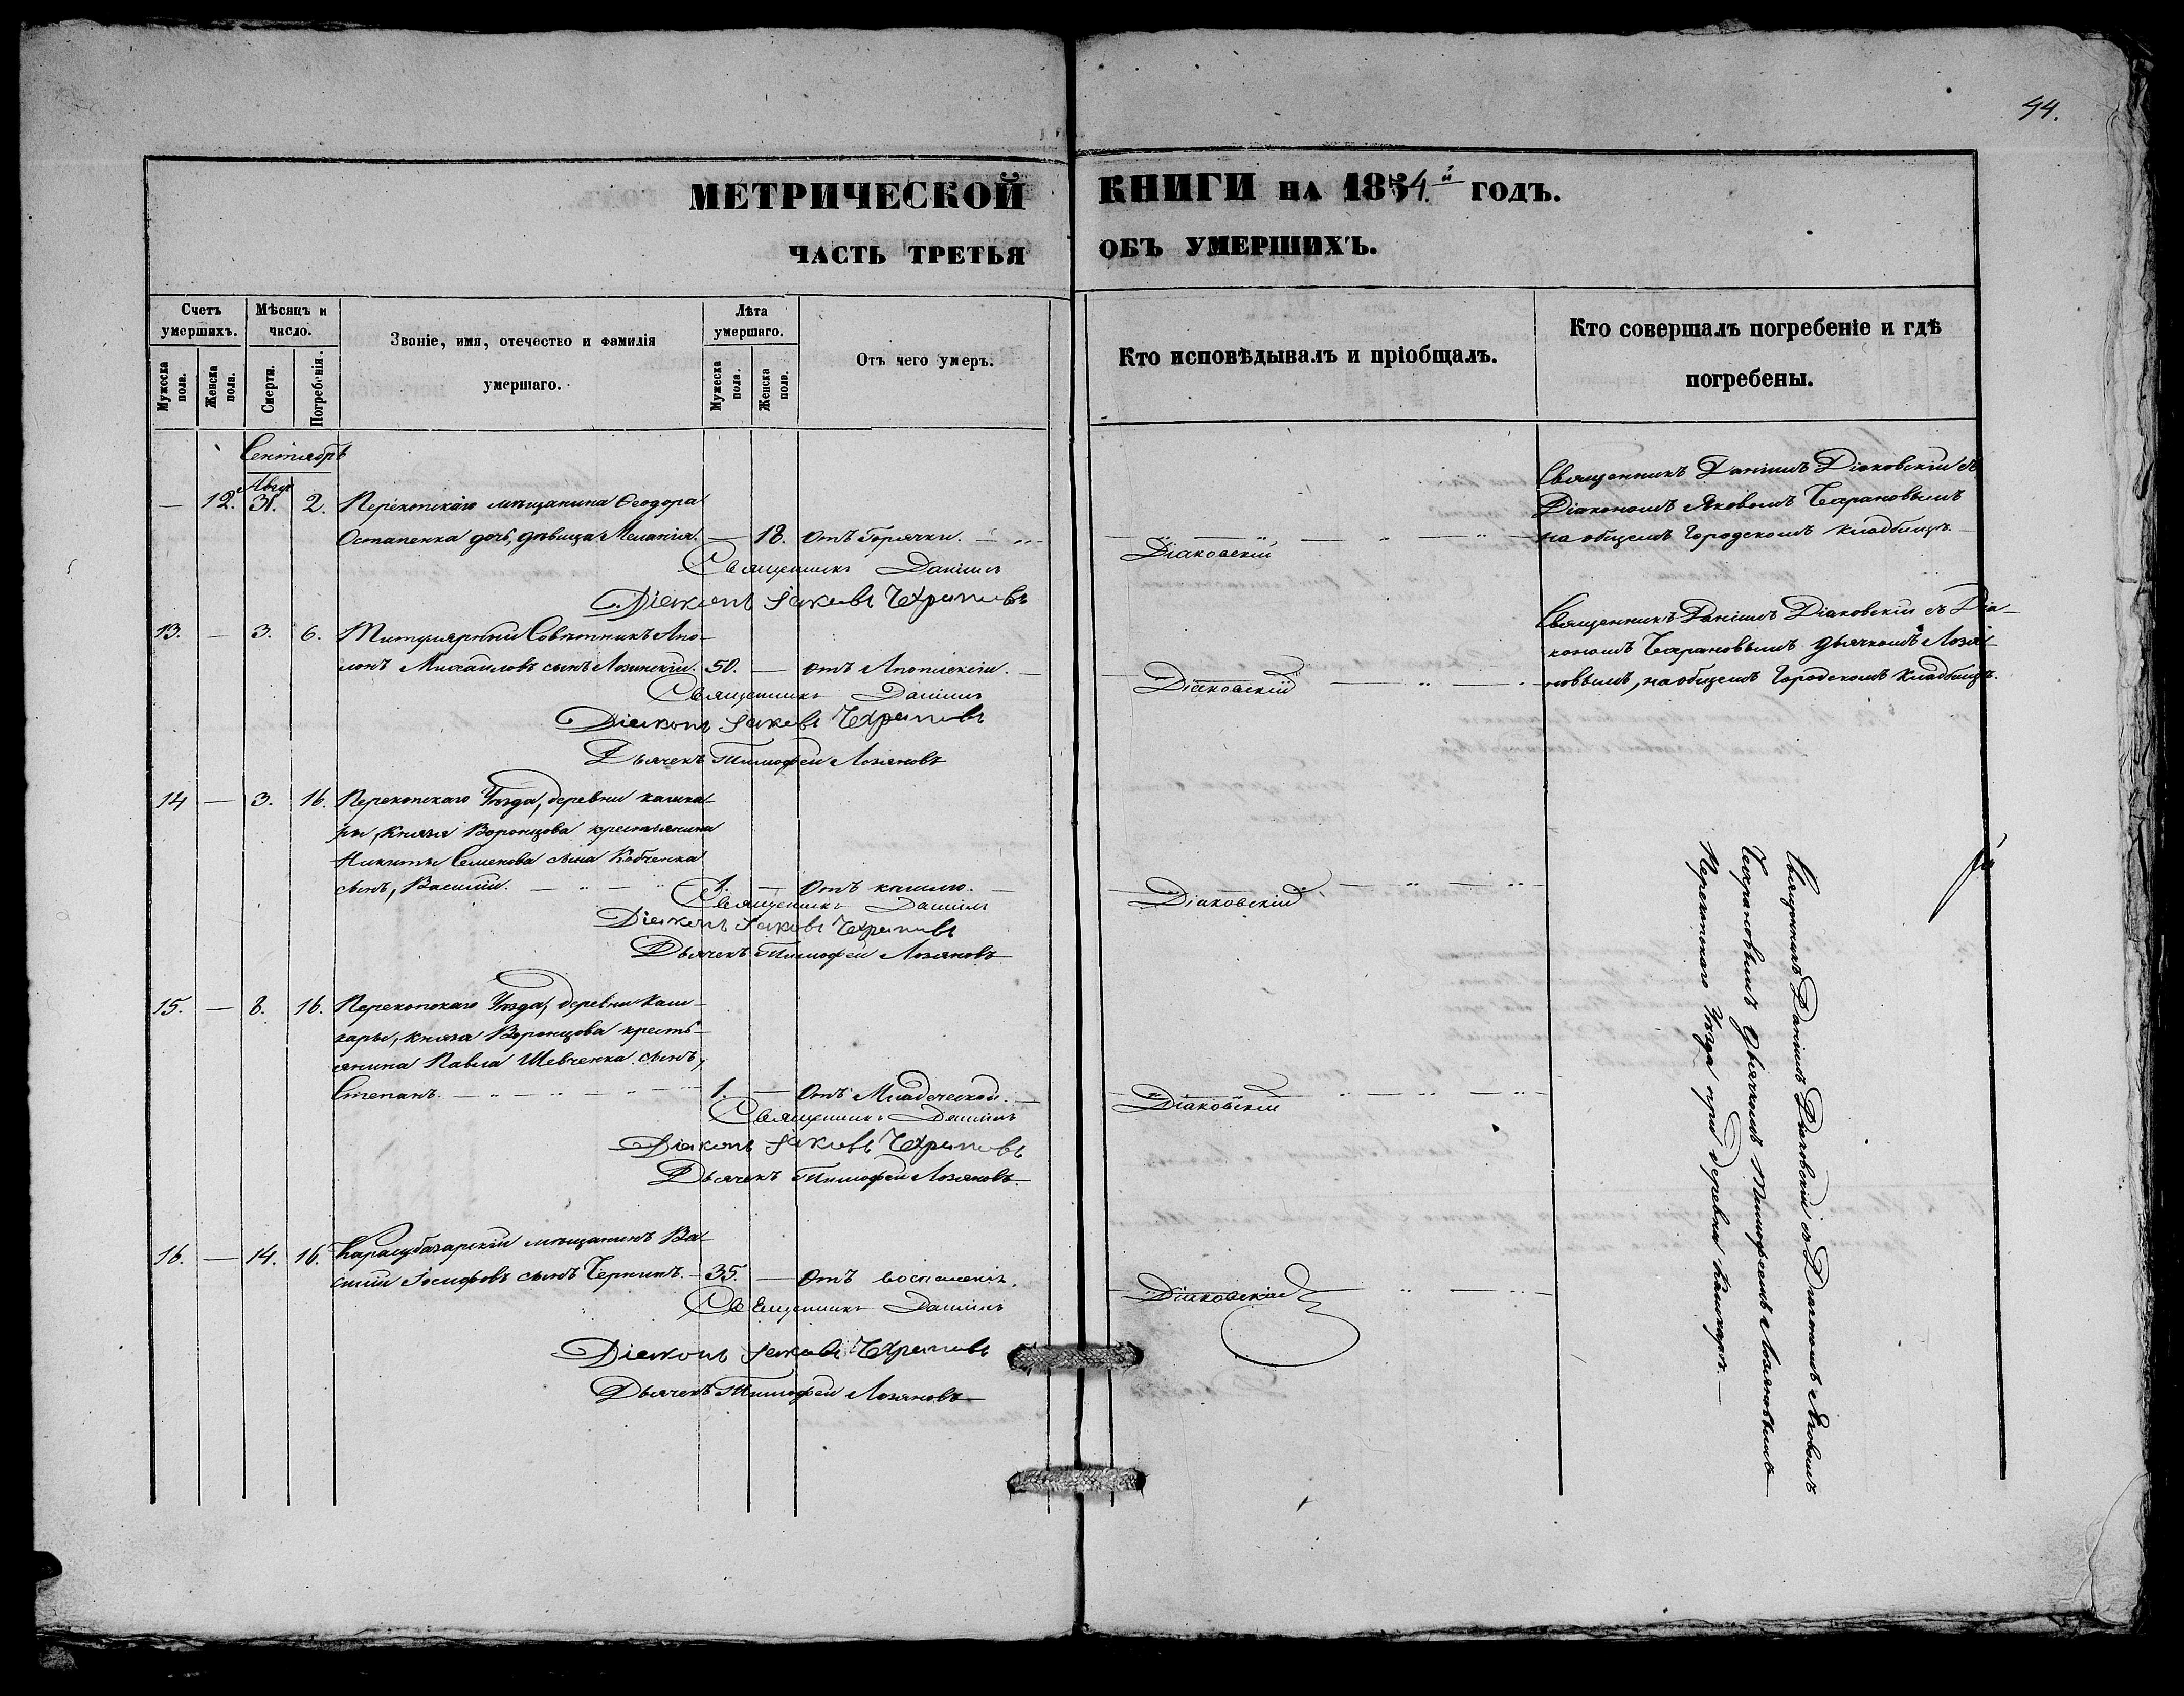 44.
МЕТРИЧЕСКОЙ КНИГИ НА 1854.й ГОДЪ.
ЧАСТЬ ТРЕТЬЯ ОБЪ УМЕРШИХЪ.
Счетъ умершихъ.
Мужеска пола.
Женска пола.
Мѣсяцъ и число.
Смерти.
Погребенія.
Званіе, имя, отечество и фамилія
умершаго.
Лѣта умершаго.
Мужеска пола.
Женска пола.
Отъ чего умеръ.
Кто исповѣдывалъ и пріобщалъ.
Кто совершалъ погребеніе и гдѣ
погребены.
Сентябрь
Авгус
— 12. 31. 2. Перекопскаго мѣщанина Ѳеодора
Остапенка дочь, дѣвица Меланія. — 18. Отъ Горячки.
Священникъ Даніилъ Діаковскій
Діаконъ Іаковъ Чехрановъ
Священникъ Даніилъ Діаковскій съ
Діакономъ Яковомъ Чехрановымъ
на общемъ Городскомъ кладбищѣ.
13. — 3. 6. Титулярный Совѣтникъ Апо-
лонъ Михаиловъ сынъ Лозинскій. 50. — Отъ Апоплексіи.
Священникъ Даніилъ Діаковскій
Діаконъ Іаковъ Чехрановъ
Дьячекъ Тимофей Лозяновъ
Священникъ Даніилъ Діаковскій съ Діа-
кономъ Чехрановымъ дьячкомъ Лозя-
новымъ, на общемъ Городскомъ Кладбищѣ.
14 — 3. 16. Перекопскаго Уѣзда, деревни кашка-
ры, Князя Воронцова крестьянина
Никиты Семенова сына Кобченка
сынъ, Василій. 1. — Отъ кашлю.
Священникъ Даніилъ Діаковскій
Діаконъ Іаковъ Чехрановъ
Дьячекъ Тимофей Лозяновъ
15. — 8. 16. Перекопскаго Уѣзда, деревни Каш-
кары, Князя Воронцова кресть-
янина Павла Шевченка сынъ,
Степанъ. 1. — Отъ Младеческой.
Священникъ Даніилъ Діаковскій
Діаконъ Іаковъ Чехрановъ
Дьячекъ Тимофей Лозяновъ.
16. — 14. 16. Карасубазарскій мѣщанинъ Ва-
силій Іосифовъ сынъ Чернинъ. 35. — Отъ воспаленія.
Священникъ Даніилъ Діаковскій
Діаконъ Іаковъ Чехрановъ
Дьячекъ Тимофей Лозяновъ
Священникъ Даніилъ Діаковскій съ Діакономъ Яковомъ
Чехрановымъ дьячкомъ Тимофеемъ Лозяновымъ
Перекопскаго Уѣзда при деревни Кашкарѣ.